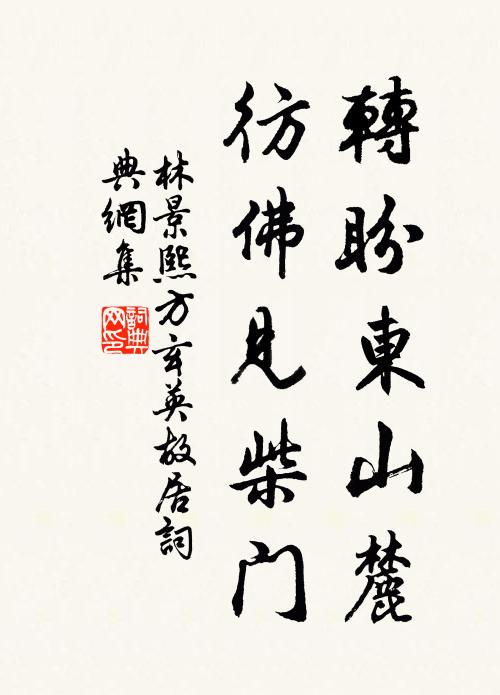 轉盼東山麓
彷佛見柴門
林景熙方玄英故居詞
典網集
詞典
网印